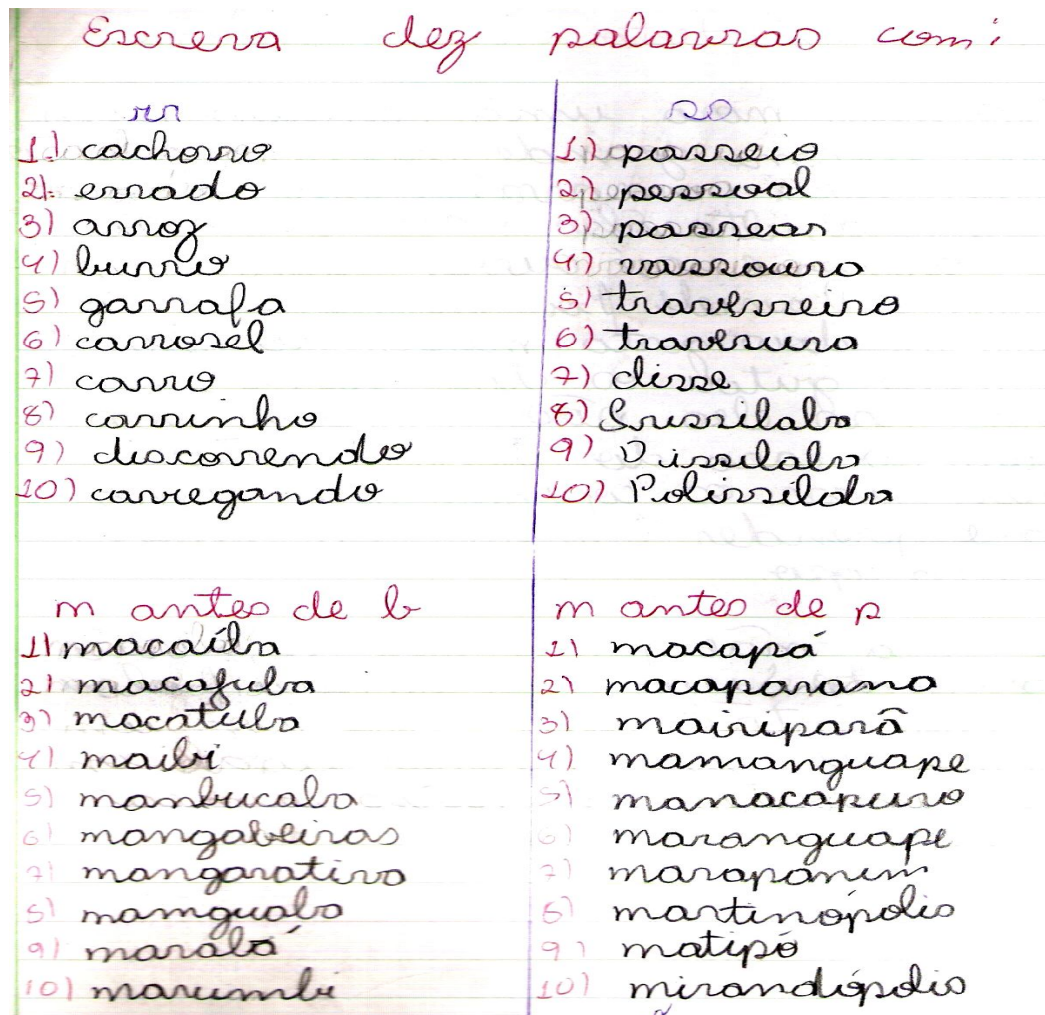 Escreva dez palavras com:
rr
1.) cachorro
2). errado
3) arroz
4) burro
5) garrafa
6) carrosél
7) carro
8) carrinho
9) discorrendo
10) carregando
ss
1) passeio
2) pessoal
3) passear
4) vassoura
5) travesseiro
6) travesura
7) disse
8) Trissilaba
9) Dissilaba
10) Polissilaba
m antes de b
1) macaíba
2) macajuba
3) macatuba
4) maibi
5) manbucaba
6) mangabeiras
7) mangarativa
8) mamguaba
9) marabá
10) marumbi
m antes de p
1) macapá
2) macaparana
3) mairiparã
4) mamanguape
5) manacapuro
6) maranguape
7) marapanim
8) martinópolis
9) matipó
10) mirandópolis